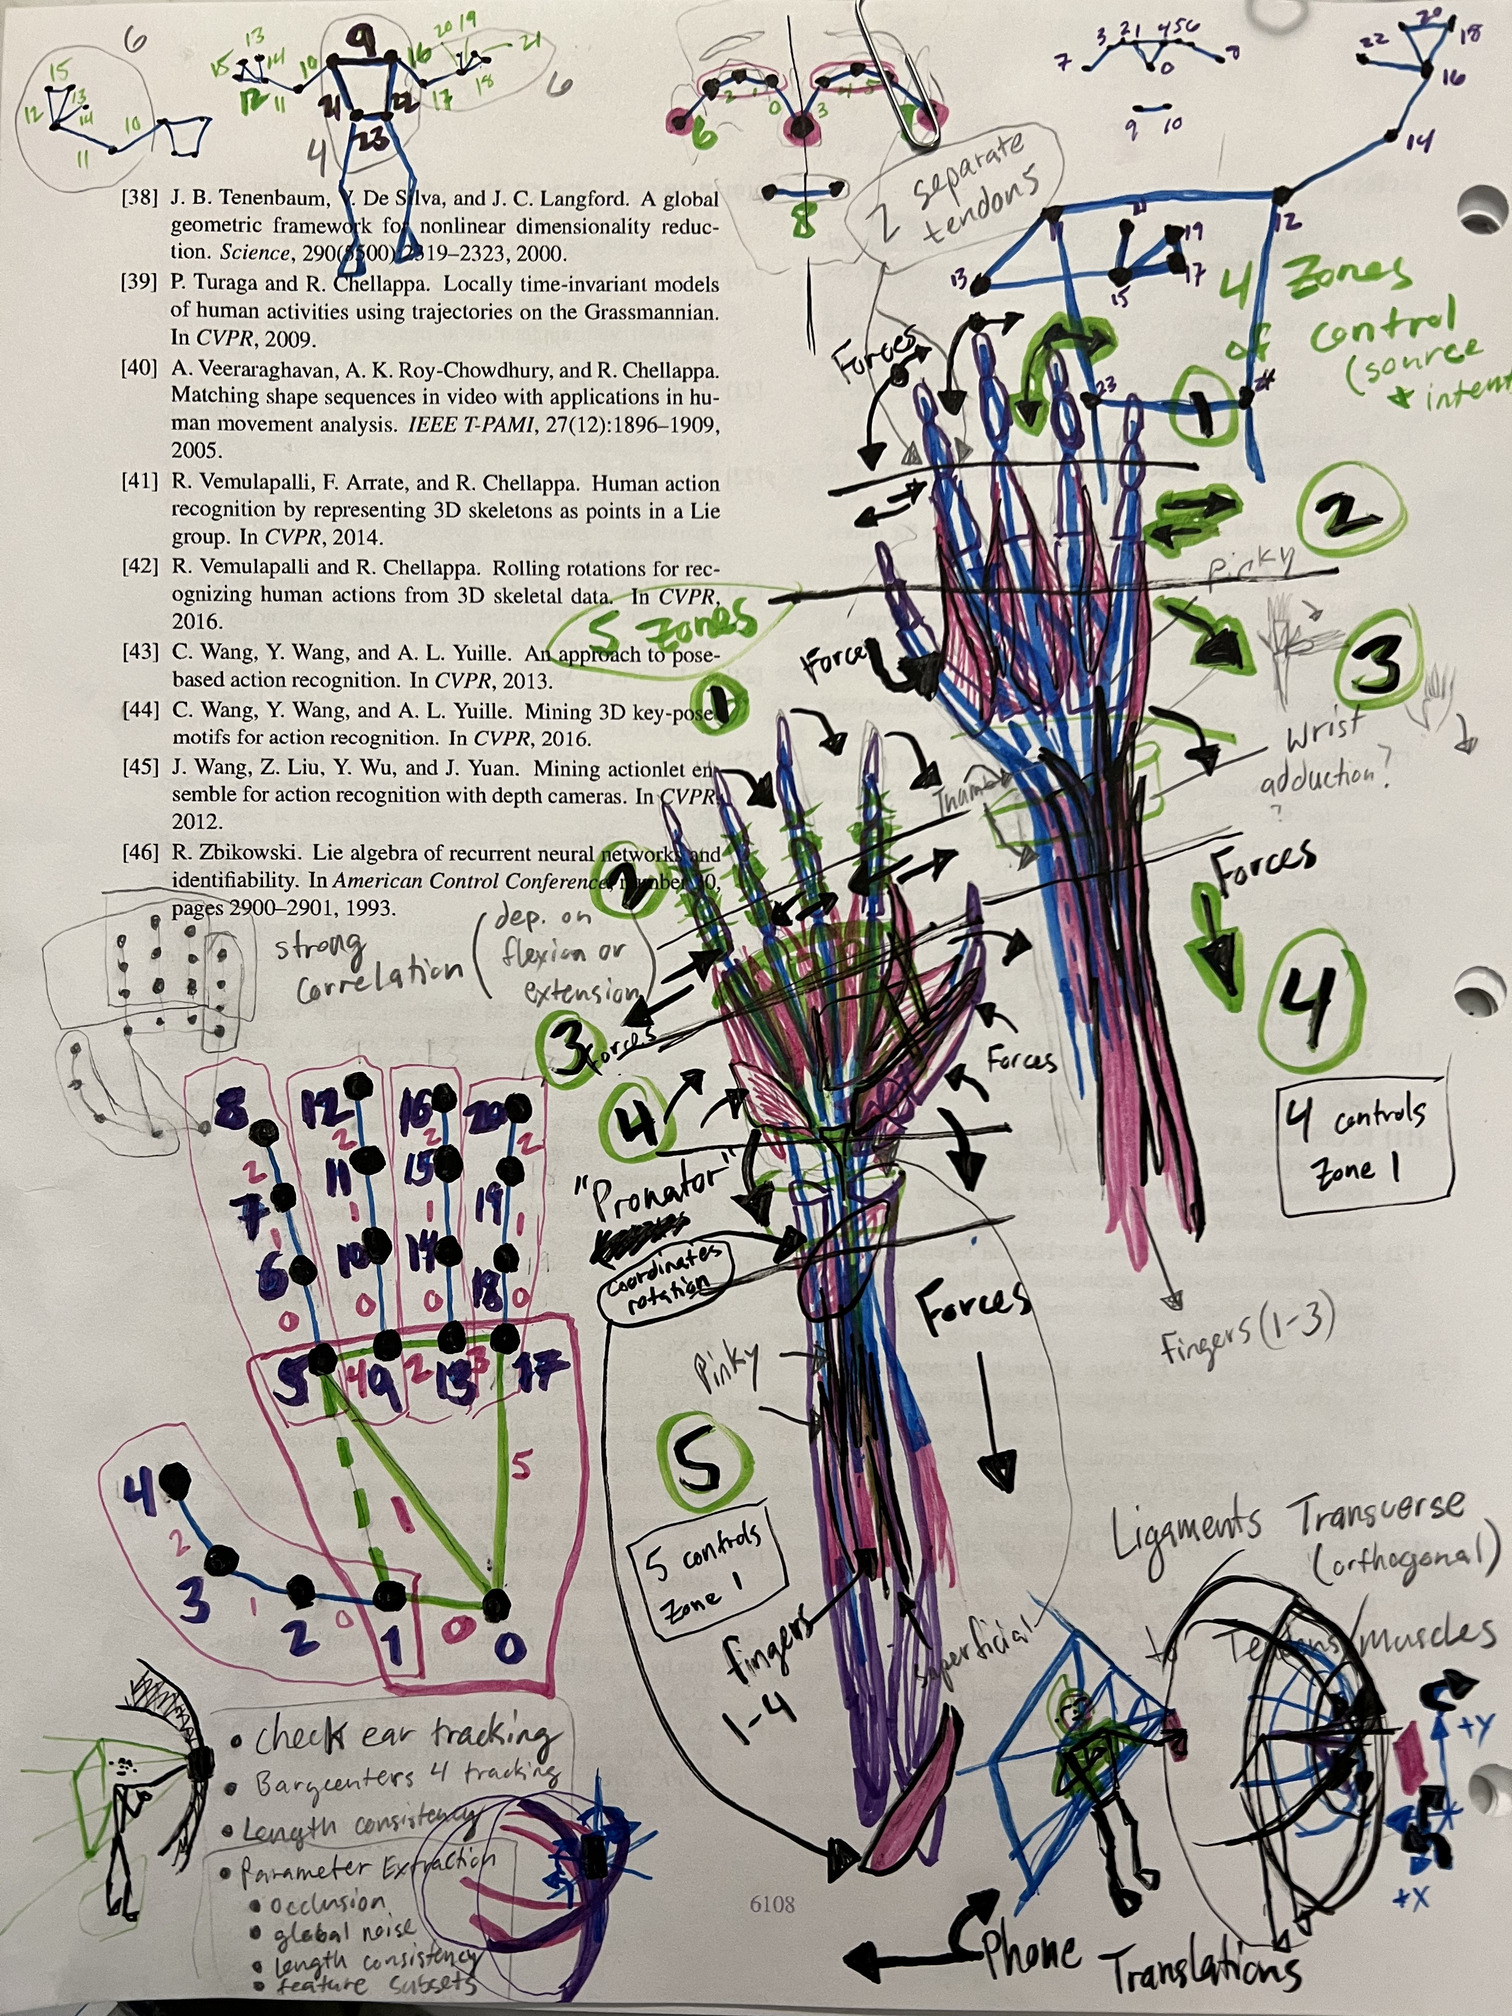 6
15
13
14
12
11
10
13
15
14
12
11
10
9
16
20 19
21
18
17
6
21
22
23
4
2
1
0
3
4
5
6
7
8
2 separate
tendons
3 21 456
7
0
8
9 10
20
22
18
16
14
12
11
13
21
19
17
15
23
24
4 Zones
of control
(source
& intent
[38] J. B. Tenenbaum, V. De Silva, and J. C. Langford. A global
geometric framework for nonlinear dimensionality reduc-
tion. Science, 290(5500):2319–2323, 2000.
[39] P. Turaga and R. Chellappa. Locally time-invariant models
of human activities using trajectories on the Grassmannian.
In CVPR, 2009.
[40] A. Veeraraghavan, A. K. Roy-Chowdhury, and R. Chellappa.
Matching shape sequences in video with applications in hu-
man movement analysis. IEEE T-PAMI, 27(12):1896–1909,
2005.
[41] R. Vemulapalli, F. Arrate, and R. Chellappa. Human action
recognition by representing 3D skeletons as points in a Lie
group. In CVPR, 2014.
[42] R. Vemulapalli and R. Chellappa. Rolling rotations for rec-
ognizing human actions from 3D skeletal data. In CVPR,
2016.
[43] C. Wang, Y. Wang, and A. L. Yuille. An approach to pose-
based action recognition. In CVPR, 2013.
[44] C. Wang, Y. Wang, and A. L. Yuille. Mining 3D key-pose
motifs for action recognition. In CVPR, 2016.
[45] J. Wang, Z. Liu, Y. Wu, and J. Yuan. Mining actionlet en-
semble for action recognition with depth cameras. In CVPR,
2012.
[46] R. Zbikowski. Lie algebra of recurrent neural networks and
identifiability. In American Control Conference, number 10,
pages 2900–2901, 1993.
Forces
1
2
Pinky
3
Forces
Wrist
adduction?
?
Thumb
Forces
4
4 controls
Zone 1
Fingers (1-3)
5 Zones
1
2
3
Forces
4
Forces
"Pronator"
Coordinates
rotation
Forces
Pinky
5
5 controls
Zone 1
fingers
1-4
superficial
strong
correlation
(dep. on
flexion or
extension)
8
12
16
20
2
2
2
2
7
11
15
19
1
1
1
1
6
10
14
18
0
0
0
0
5
4
9
2
13
3
17
5
1
4
2
3
1
2
0
1
0
0
Ligaments Transverse
(orthogonal)
to Tendons/muscles
+Y
+X
• check ear tracking
• Barycenters 4 tracking
• Length consistency
• Parameter Extraction
• occlusion
• global noise
• length consistency
• feature subsets
6108
Phone Translations